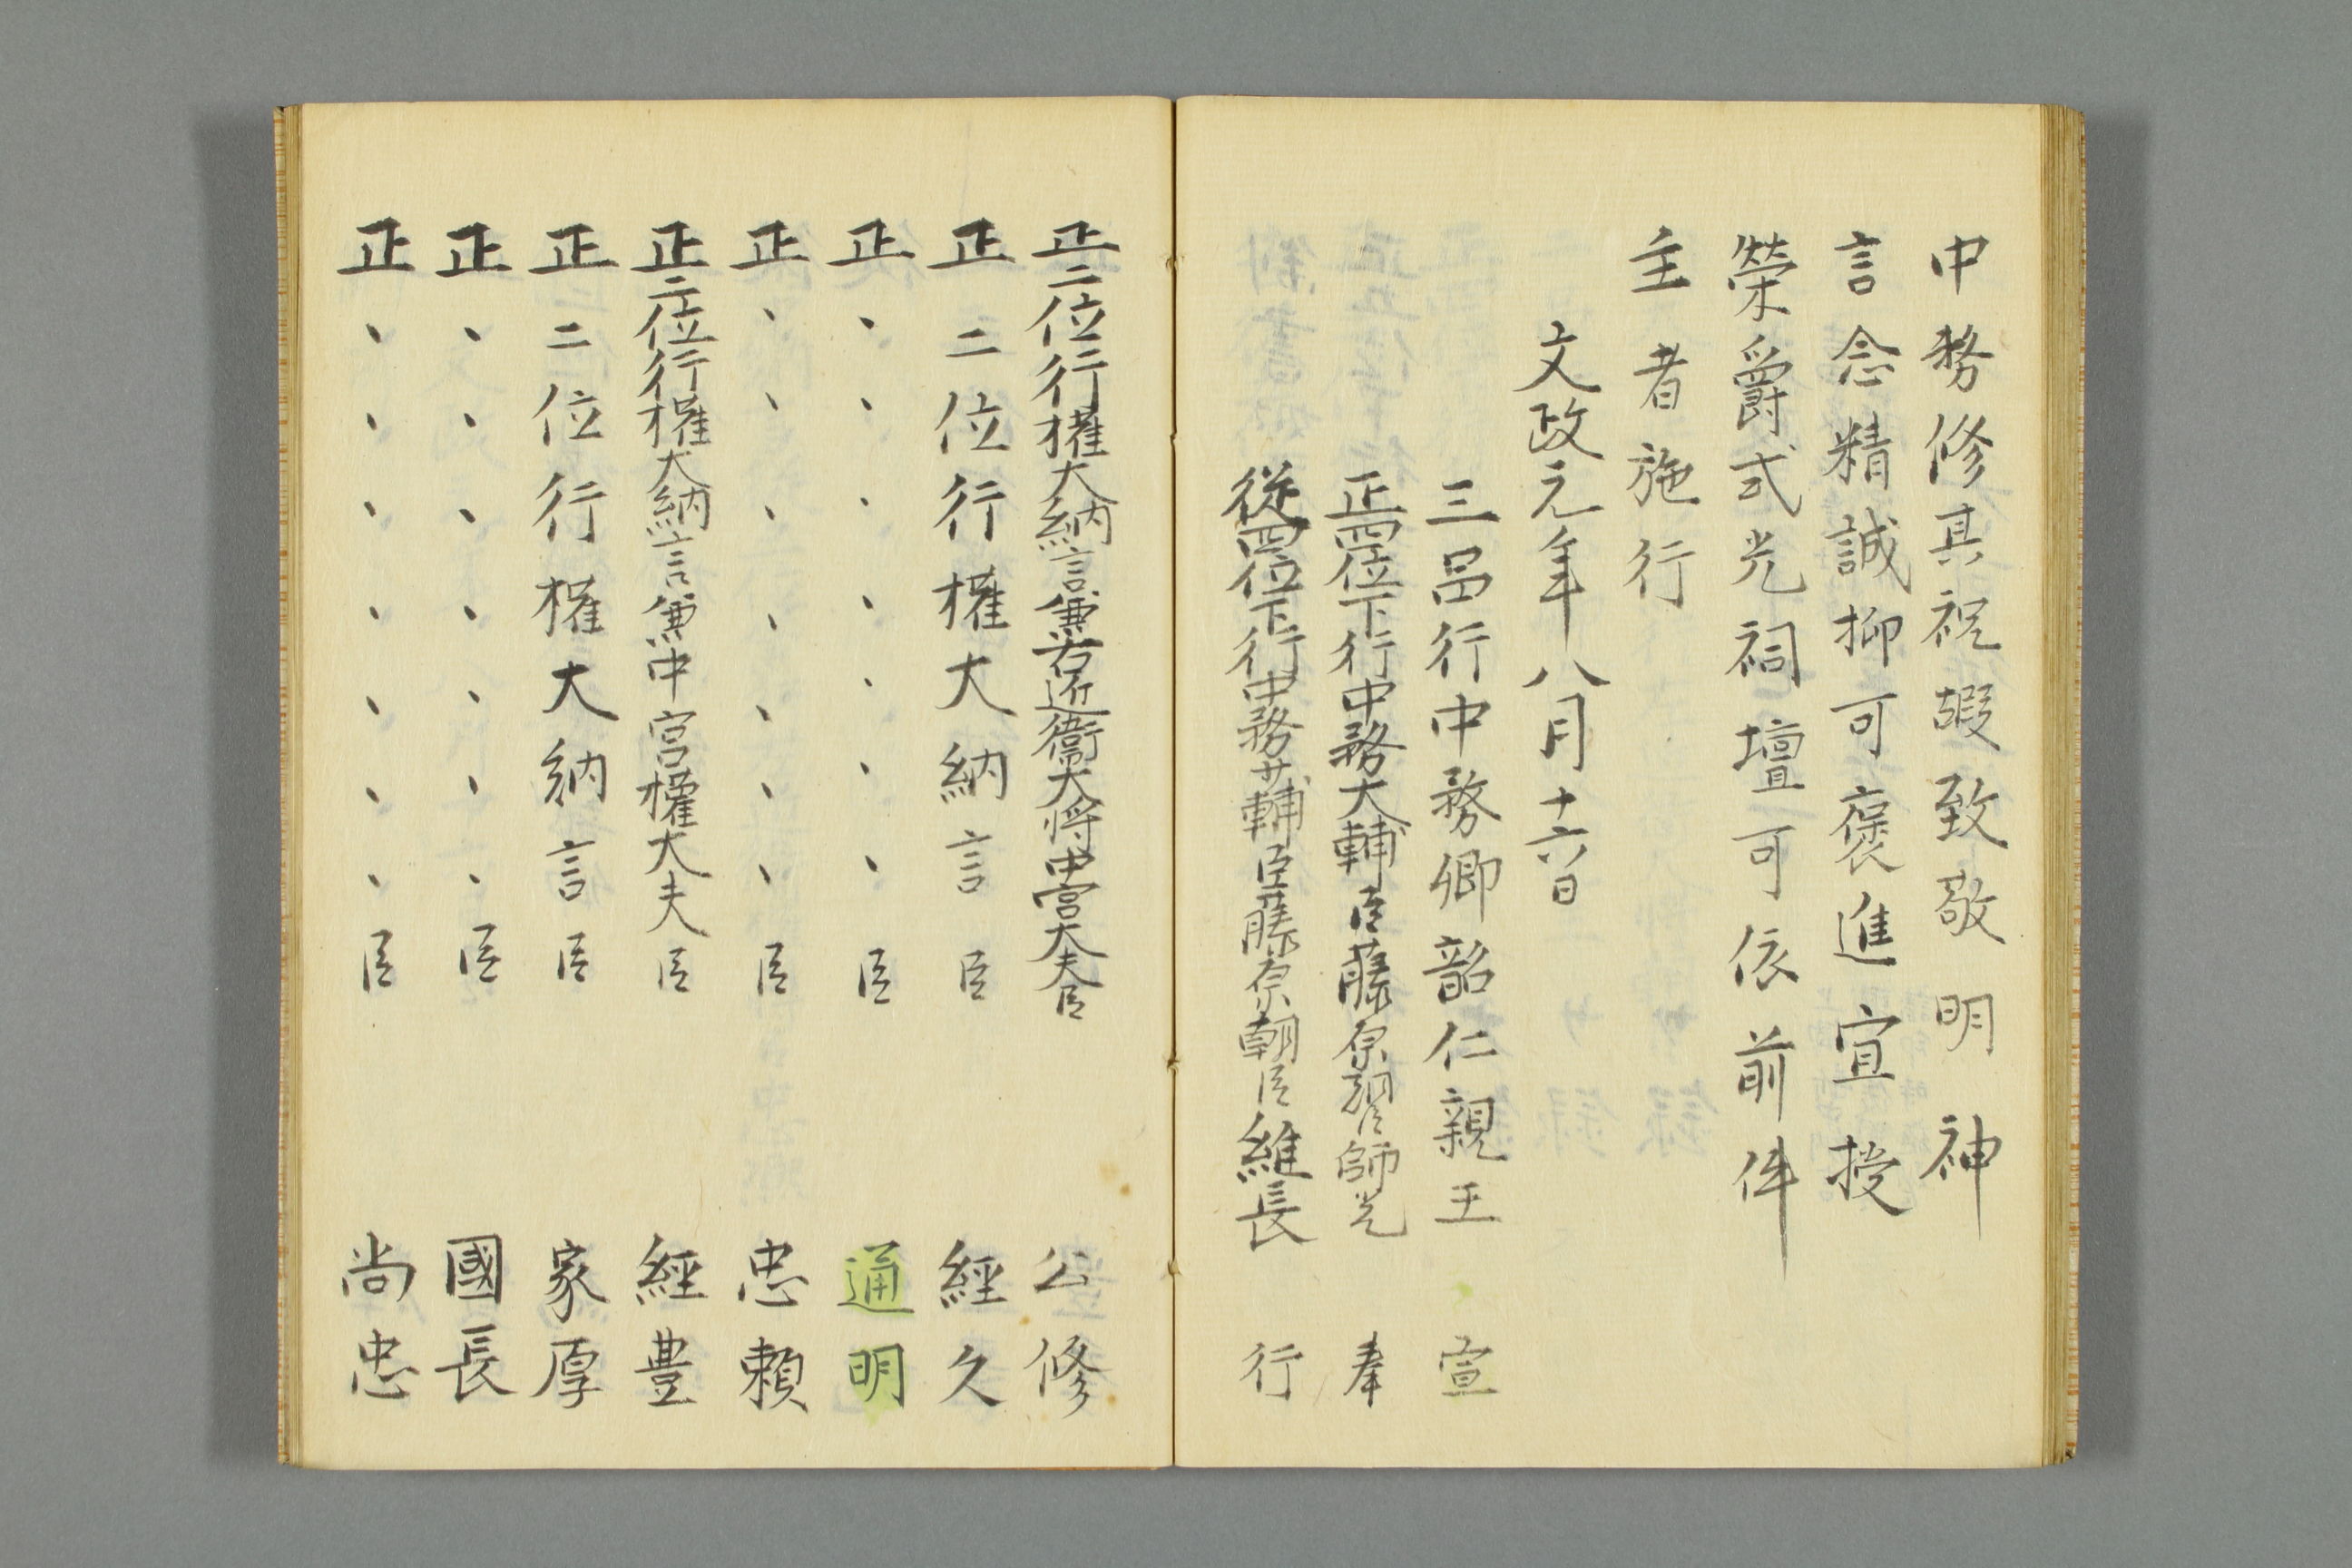 中務修其祝嘏致敬明神
言念精誠抑可褒進宜授
榮爵式光祠壇可依前件
主者施行
文政元年八月十六日
三品行中務卿韶仁親王 宣
正四位下行中務大輔臣藤原朝臣師光 奉
従四位下行中務少輔臣藤原朝臣維長 行
正二位行權大納言兼右近衛大将中宮大夫臣 公修
正二位行權大納言臣 經久
正、、、、、、臣 通明
正、、、、、、臣 忠頼
正二位行權大納言兼中宮權大夫臣 經豊
正二位行權大納言臣 家厚
正、、、、、、臣 國長
正、、、、、、臣 尚忠